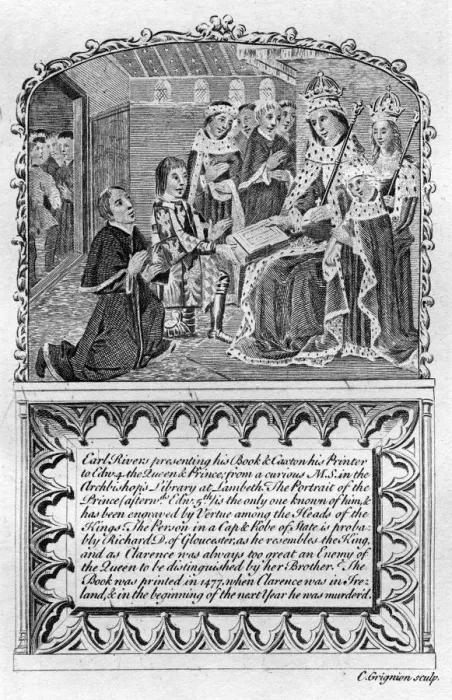 Earl Rivers presenting his Book & Caxton his Printer
to Edw. 4. the Queen & Prince, from a curious M.S. in the
Archbishop's Library at Lambeth. The Portrait of the
Prince (afterw.ds Edw. 5.th) is the only one known of him, &
has been engraved by Vertue among the Heads of the
Kings. The Person in a Cap & Robe of State is proba-
bly Richard D. of Gloucester, as he resembles the King,
and as Clarence was always too great an Enemy of
the Queen to be distinguished by her Brother. The
Book was printed in 1477, when Clarence was in Ire-
land, & in the beginning of the next Year he was murder'd.
C. Grignion sculp.